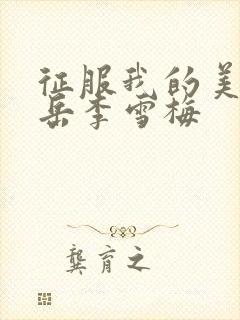 征服我的美
岳李雪梅
龚育之